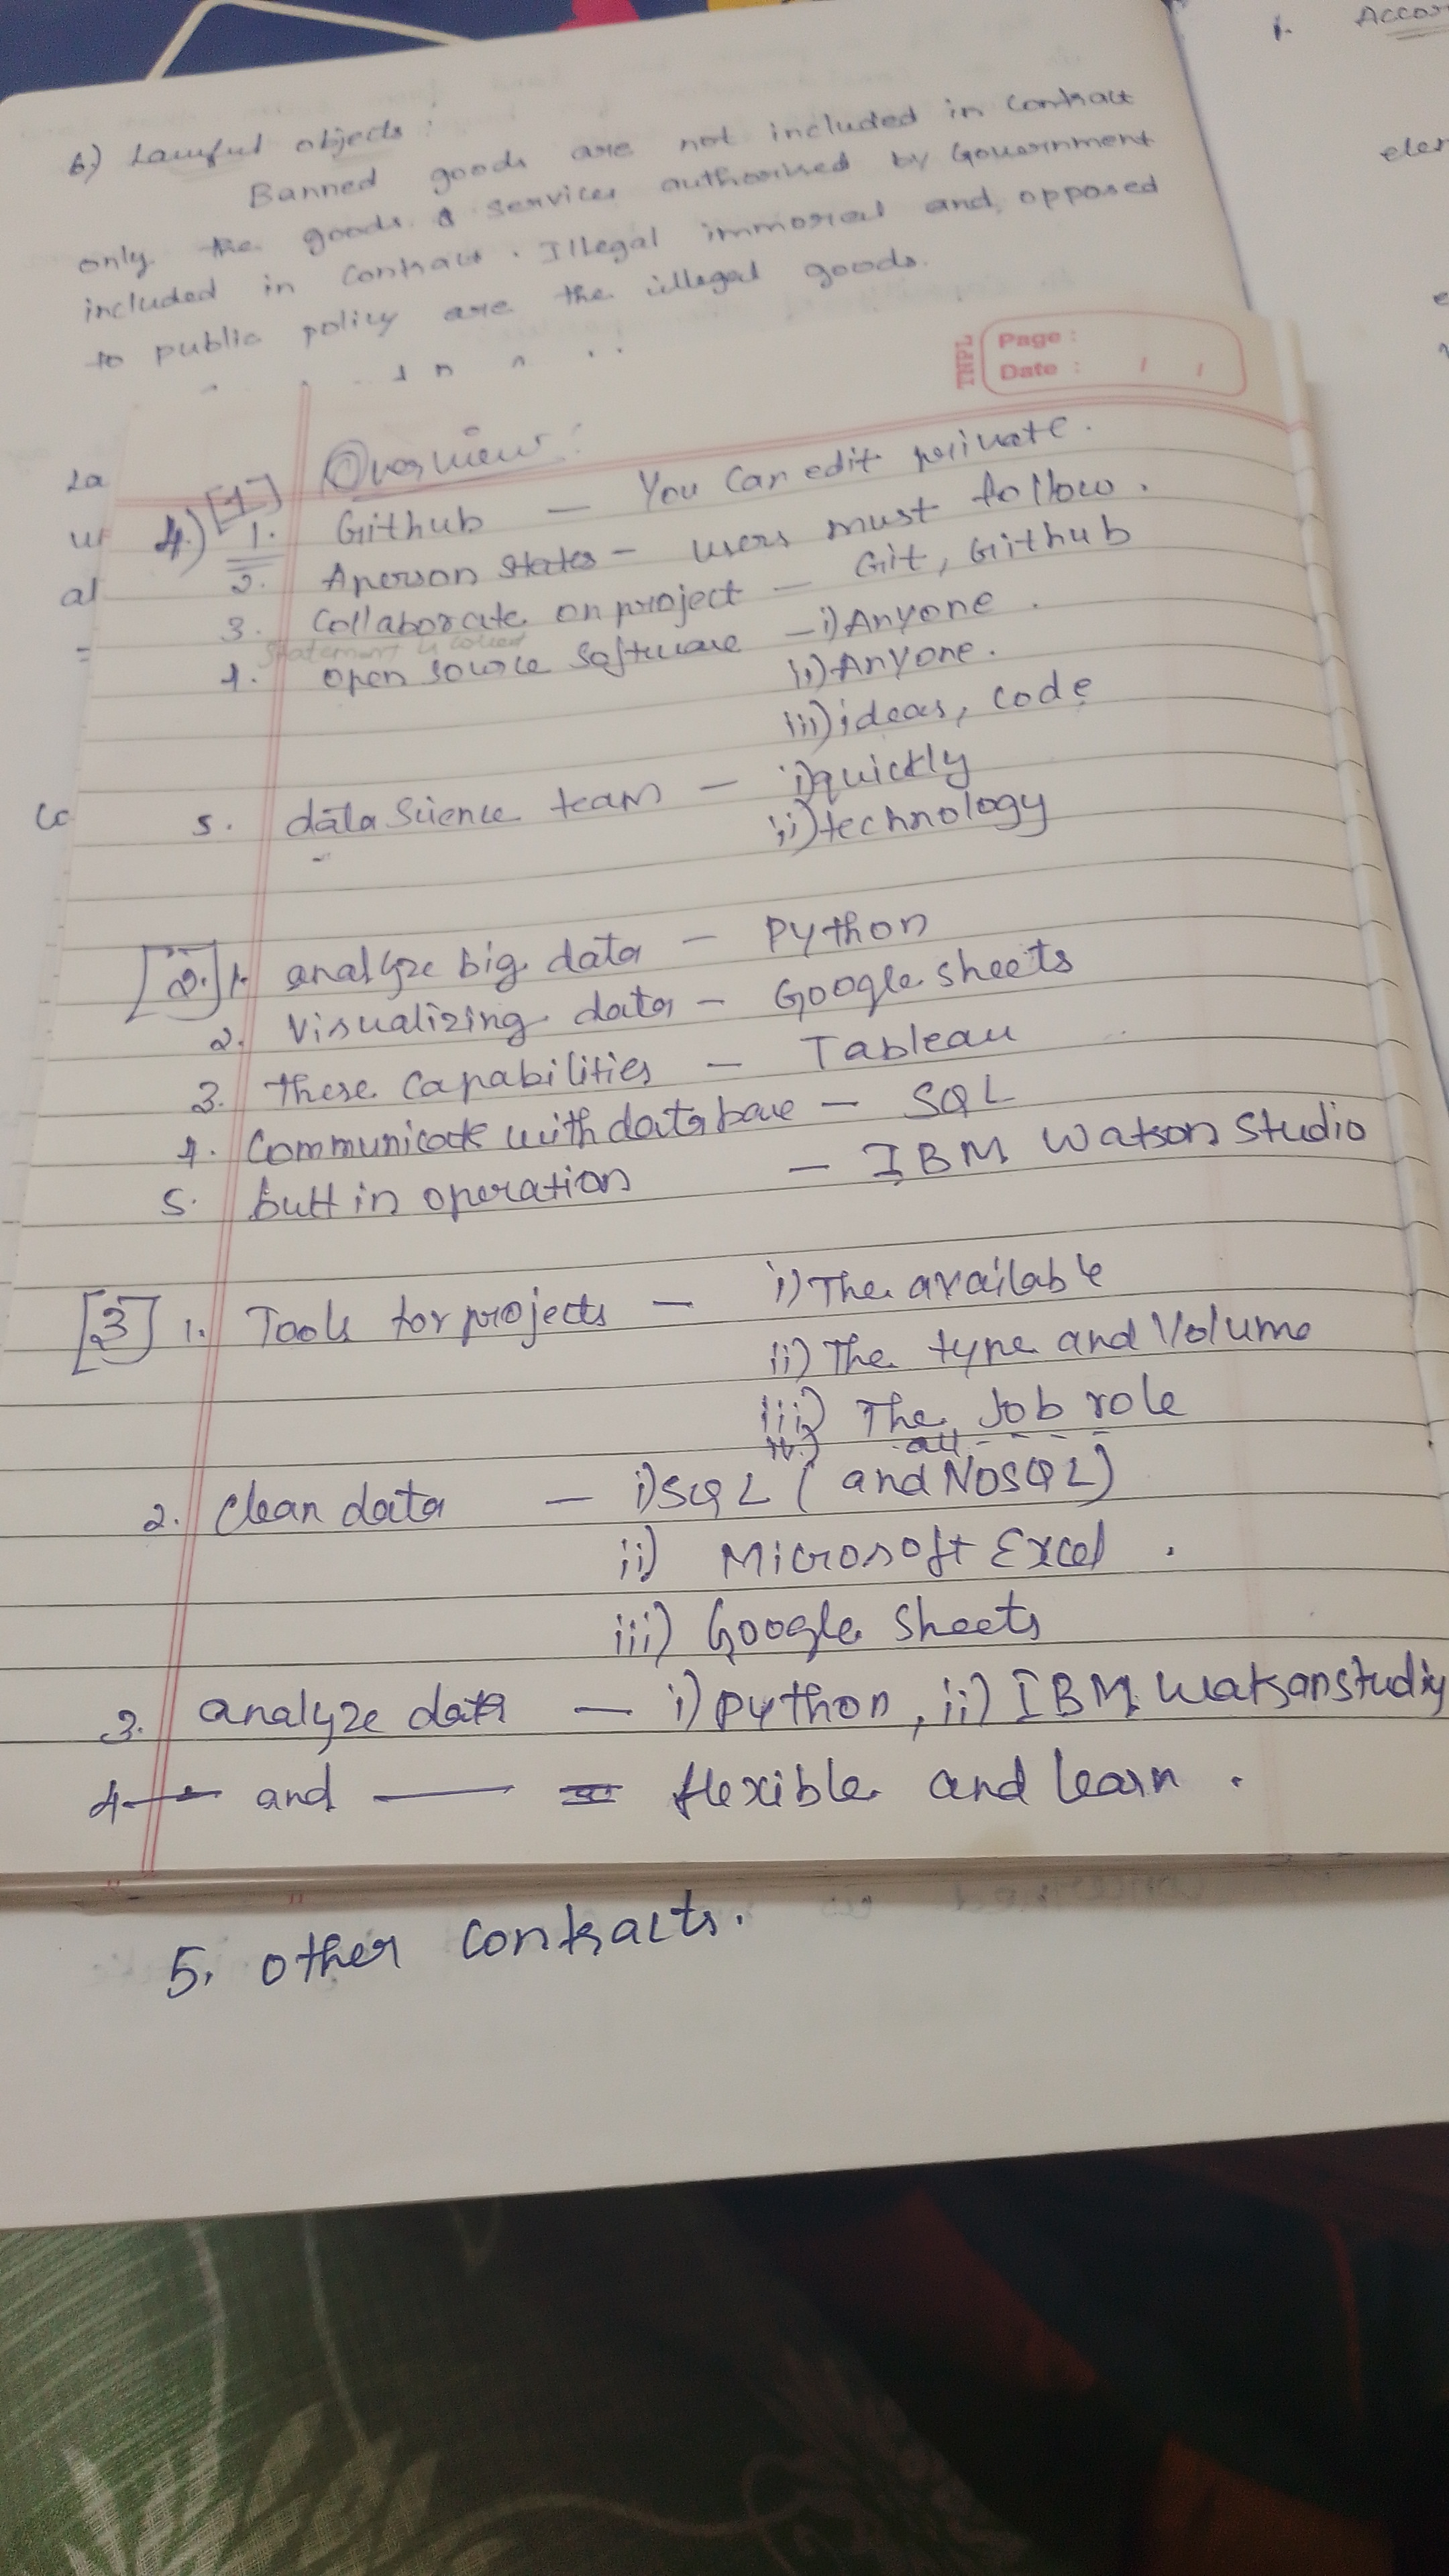 1. Accou
eler
6.) Lawful objects :
Banned goods are not included in contract
only the goods & services authorised by Government
included in contract. Illegal immoral and opposed
to public policy are the illegal goods.
TNPL
Page :
Date : / /
La
al
=
Overview :
4.) [1] 1. Github — You can edit private.
2. A person states - users must follow.
3. Collaborate on project — Git, Github
Statement is correct
4. open source software — i) Anyone.
ii) Anyone.
iii) ideas, code
5. data science team — i) quickly
ii) technology
[2.] 1. analyze big data — Python
2. Visualizing data — Google sheets
3. These capabilities — Tableau
4. Communicate with database — SQL
5. butt in operation — IBM Watson Studio
[3] 1. Tools for projects — i) The available
ii) The type and Volume
iii) The Job role
iv.) all - - - -
2. Clean data — i) SQL (and NOSQL)
ii) Microsoft Excel .
iii) Google Sheets
3. analyze data — i) Python, ii) IBM Watsonstudiy
4 — and — = flexible and learn .
5. other contracts.